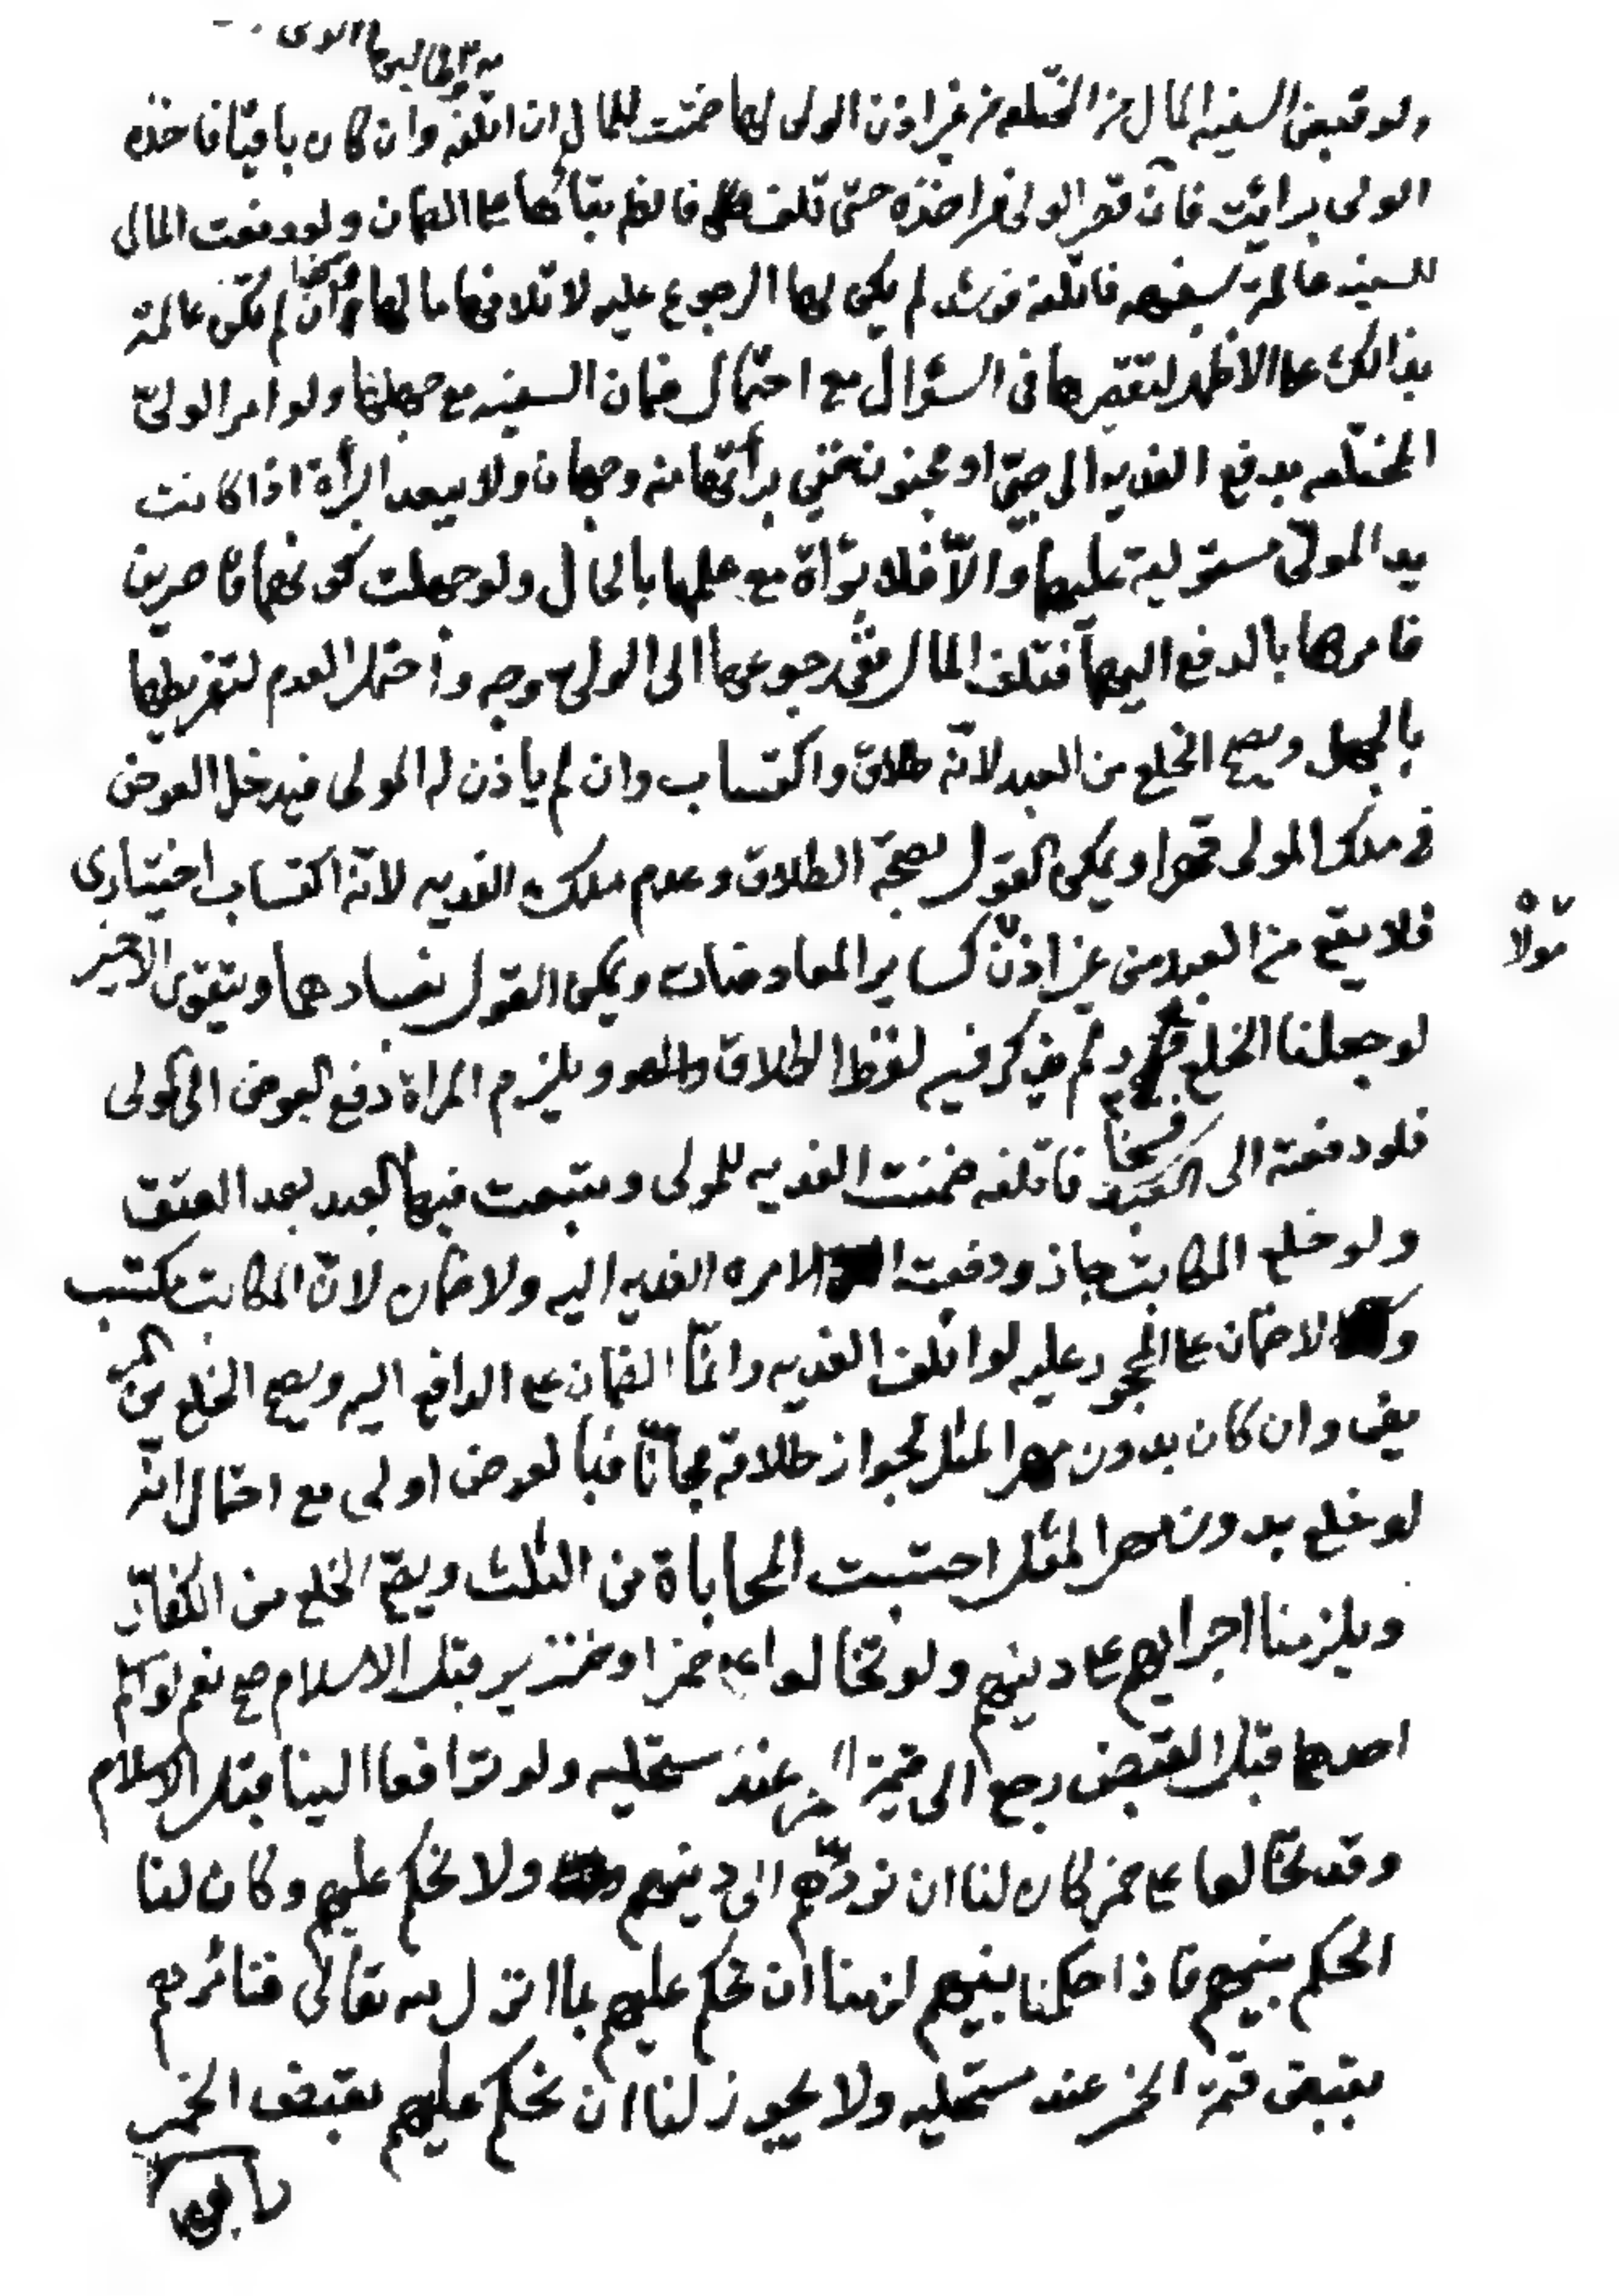 ولو قبض السفيه المال من المختلعه من غير اذن الولى لها ضمنت للمال ان اتلفه وان كان باقيا فاخذه
الولى برائت فان قصر الولى في اخذه حتى تلف فالظ بقائها على الضمان ولو دفعت المال
للسفيه عالمة بسفهه فاتلفه فرشد لم يكن لها الرجوع عليه لاتلافها مالها وان لم تكن عالمة
بذالك على الاظهر لتقصيرها فى السؤال مع احتمال ضمان السفيه مع جهلها ولو امر الولىّ
المختلعه بدفع الفديه الى صبىّ او مجنون ففي برأتها منه وجهان ولا يبعد البرأة اذا كانت
يد المولّى مستولية عليهما والاّ فلا برأة مع علمها بالحال ولو جهلت كونهما قاصرين
فامرها بالدفع اليهما فتلف المال ففى رجوعها الى الولى وجه واحتمل العدم لتفريطها
بالجهل ويصح الخلع من العبد لانّه طلاق واكتساب وان لم ياذن له المولى فيدخل العوض
فى ملك المولى قهرا ويمكن القول بصحّة الطلاق وعدم ملك الفديه لانّه اكتساب اختيارى
فلا يقع من العبد من غير اذن كساير المعاوضات ويمكن القول بفسادهما ويتقوى الاخير
مولاه
لو جعلنا الخلع فسخا ولم يذكر فيه لفظ الطلاق ويلزم المراة دفع العوض الى المولى
فلو دفعته الى العبد فاتلفه ضمنت الفديه للمولى وتتبعت فيها العبد بعد العتق
ولو خلع المكاتب جاز ودفعت الامره الفديه اليه ولا ضمان لانّ المكاتب مكتسب
ولا ضمان على المحجور عليه لو اتلف الفديه وانّما الضمان على الدافع اليه ويصح الخلع من المر
يض وان كان بدون مهر المثل لجواز طلاقه مجانّا فبالعوض اولى مع احتمال انّه
لو خلع بدون مهر المثل احتسبت المحاباة من الثلث ويصحّ الخلع من الكفّار
ويلزمنا اجرايهم على دينهم ولو تخالعوا على خمر او خنزير قبل الاسلام صح نعم لو اسلم
احدهما قبل القبض رجع الى قيمة الخمر عند مستحليه ولو ترافعا الينا قبل الاسلام
وقد تخالعا على خمر كان لنا ان نردّهم الى دينهم ولا نحكم عليهم وكان لنا
الحكم بينهم فاذا حكمنا بينهم لزمنا ان نحكم عليهم بما انزل الله تعالى فنامرهم
بقبض قيمة الخمر عند مستحليه ولا يجوز لنا ان نحكم عليهم بقبض الخمر